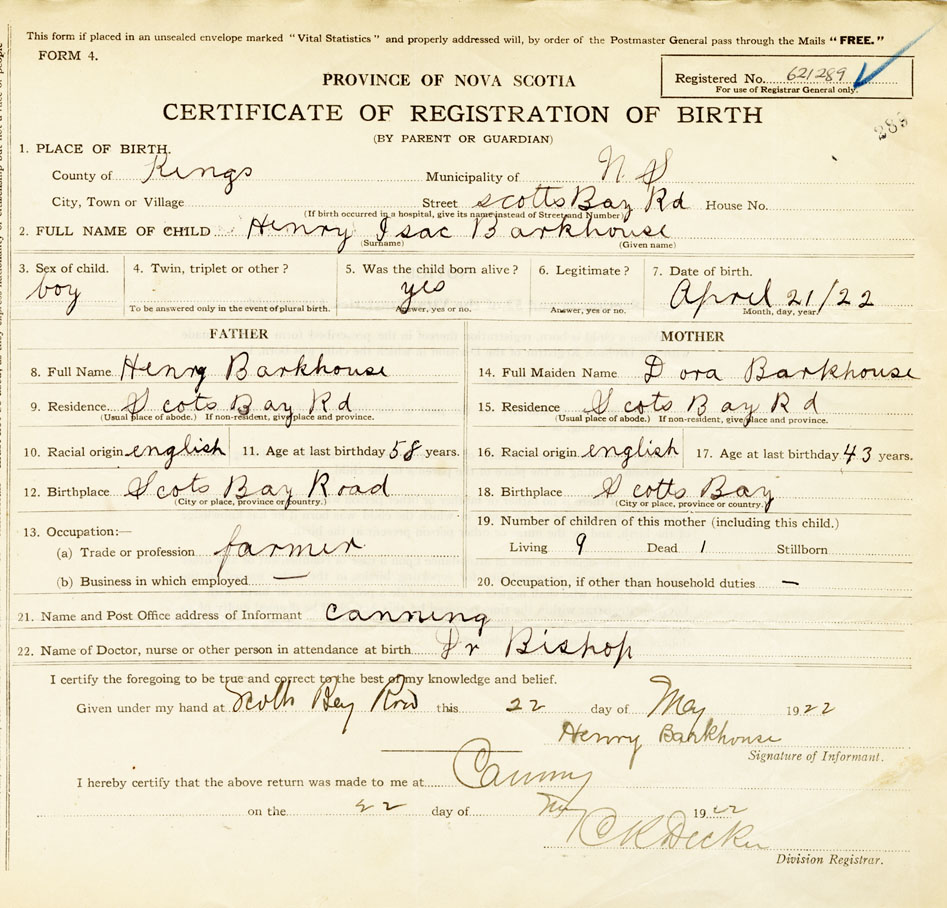 This form if placed in an unsealed envelope marked "Vital Statistics" and properly addressed will, by order of the Postmaster General pass through the Mails "FREE."
FORM 4.
Registered No. 621289
For use of Registrar General only.
PROVINCE OF NOVA SCOTIA
CERTIFICATE OF REGISTRATION OF BIRTH
(BY PARENT OR GUARDIAN)
289
1. PLACE OF BIRTH.
County of Kings Municipality of N S
City, Town or Village Street scotts Bay Rd House No.
(If birth occurred in a hospital, give its name instead of Street and Number)
2. FULL NAME OF CHILD Henry Isac Barkhouse
(Surname) (Given name)
3. Sex of child. 4. Twin, triplet or other? 5. Was the child born alive? 6. Legitimate? 7. Date of birth.
boy yes April 21/22
To be answered only in the event of plural birth. Answer, yes or no. Answer, yes or no. Month, day, year.
FATHER MOTHER
8. Full Name Henry Barkhouse 14. Full Maiden Name Dora Barkhouse
9. Residence Scots Bay Rd 15. Residence Scots Bay Rd
(Usual place of abode.) If non-resident, give place and province. (Usual place of abode.) If non-resident, give place and province.
10. Racial origin english 11. Age at last birthday 58 years. 16. Racial origin english 17. Age at last birthday 43 years.
12. Birthplace Scots Bay Road 18. Birthplace Scotts Bay
(City or place, province or country.) (City or place, province or country.)
13. Occupation:— 19. Number of children of this mother (including this child.)
(a) Trade or profession farmer Living 9 Dead 1 Stillborn
(b) Business in which employed — 20. Occupation, if other than household duties —
21. Name and Post Office address of Informant canning
22. Name of Doctor, nurse or other person in attendance at birth Dr Bishop
I certify the foregoing to be true and correct to the best of my knowledge and belief.
Given under my hand at Scotts Bay Road this 22 day of May 1922
Henry Barkhouse
Signature of Informant.
I hereby certify that the above return was made to me at Canning
on the 22 day of May 1922
C R Decker
Division Registrar.